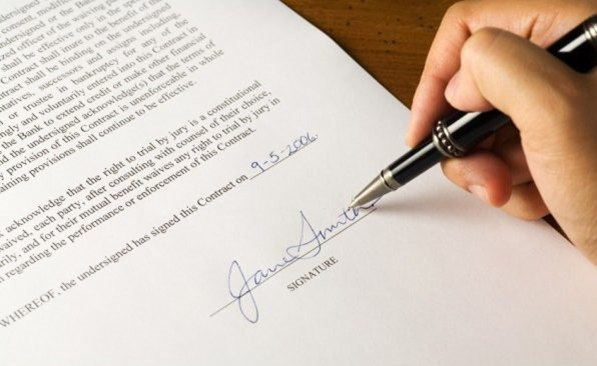 consent,
undersigned or the
officer of the waiving
shall be effective only in the
Contract shall inure to the benefit of the
shall be binding on the undersigned
successors and assigns including,
or trustee in bankruptcy for any of the
and voluntarily entered into this Contract in
the Bank to extend credit or make other financial
the undersigned acknowledge(s) that the terms of
provision of this Contract is unenforceable in whole
provisions shall continue to be effective.
acknowledge that the right to trial by jury is a constitutional
waived, each party, after consulting with counsel of their choice,
and for their mutual benefit waives any right to trial by jury in
regarding the performance or enforcement of this Contract.
WHEREOF, the undersigned has signed this Contract on 9-5-2006.
Jane Smith
SIGNATURE